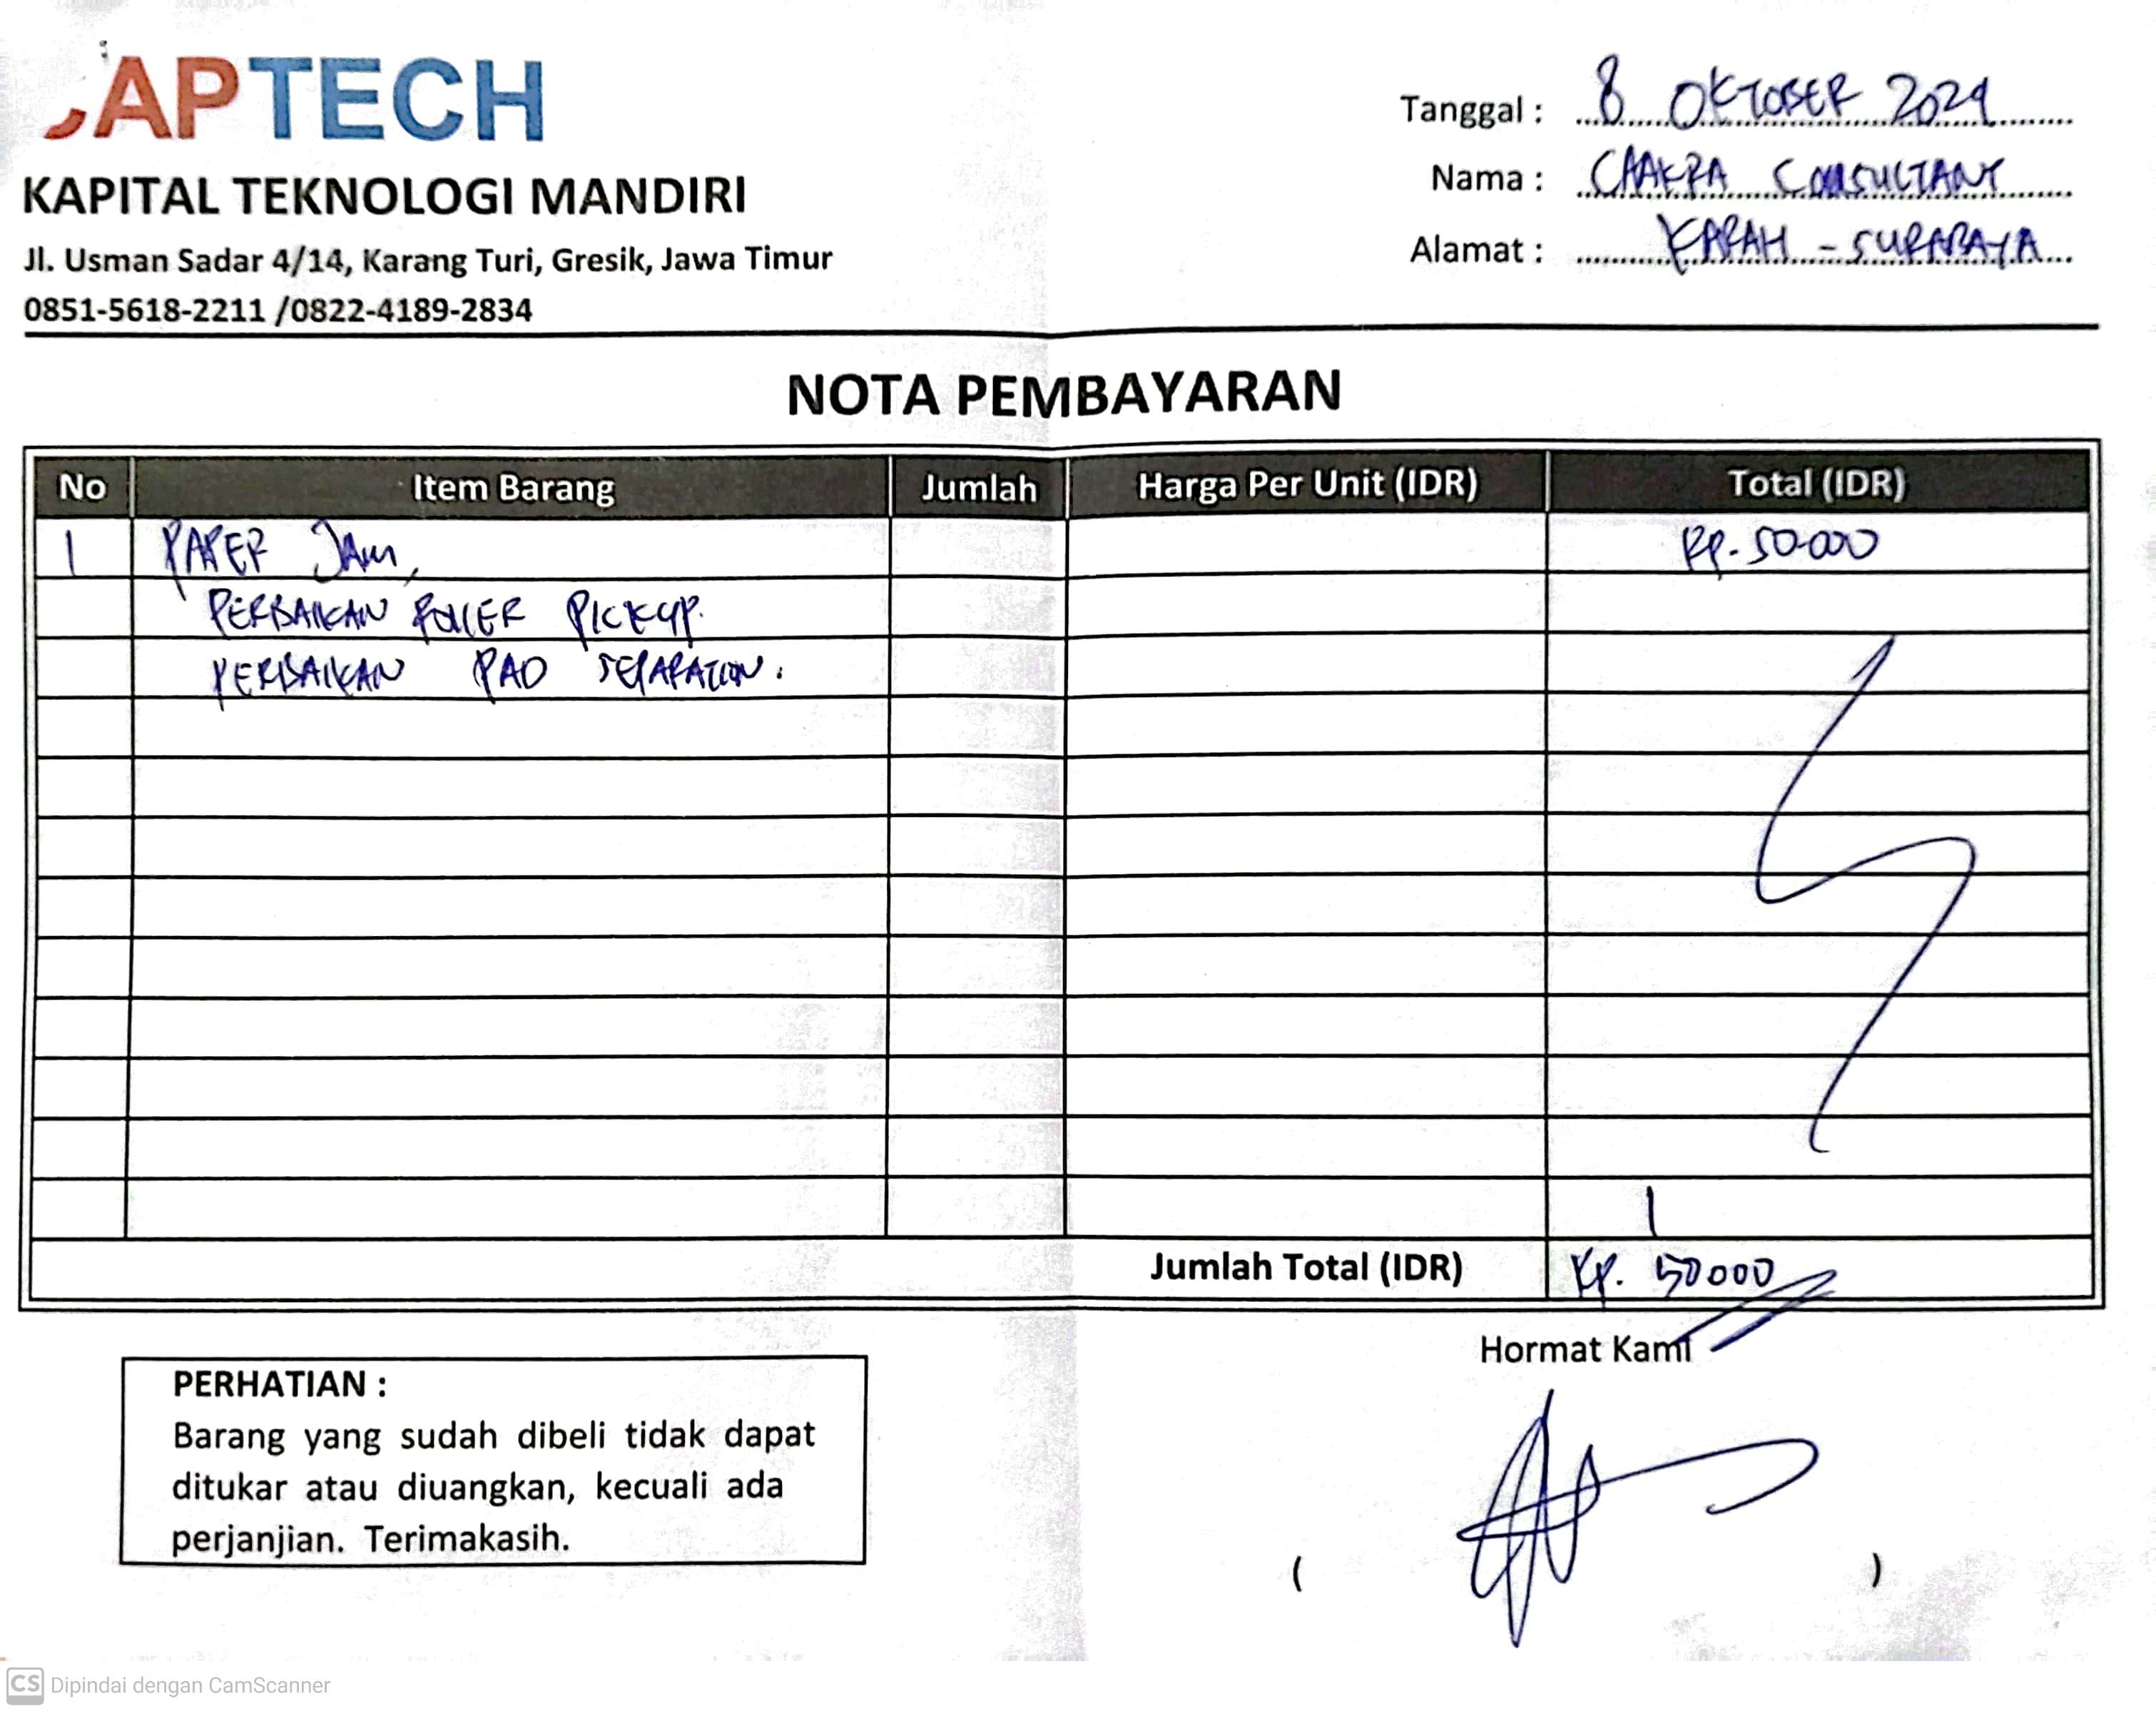 CAPTECH
KAPITAL TEKNOLOGI MANDIRI
Jl. Usman Sadar 4/14, Karang Turi, Gresik, Jawa Timur
0851-5618-2211 /0822-4189-2834
Tanggal : 8 OKTOBER 2024
Nama : CAAKRA CONSULTANT
Alamat : KARAH - SURABAYA
NOTA PEMBAYARAN
No Item Barang Jumlah Harga Per Unit (IDR) Total (IDR)
1 PAPER JAM, Rp. 50.000
PERBAIKAN ROLLER PICKUP.
PERBAIKAN PAD SEPARATION.
Jumlah Total (IDR) Rp. 50000
Hormat Kami
PERHATIAN :
Barang yang sudah dibeli tidak dapat
ditukar atau diuangkan, kecuali ada
perjanjian. Terimakasih.
( )
CS Dipindai dengan CamScanner